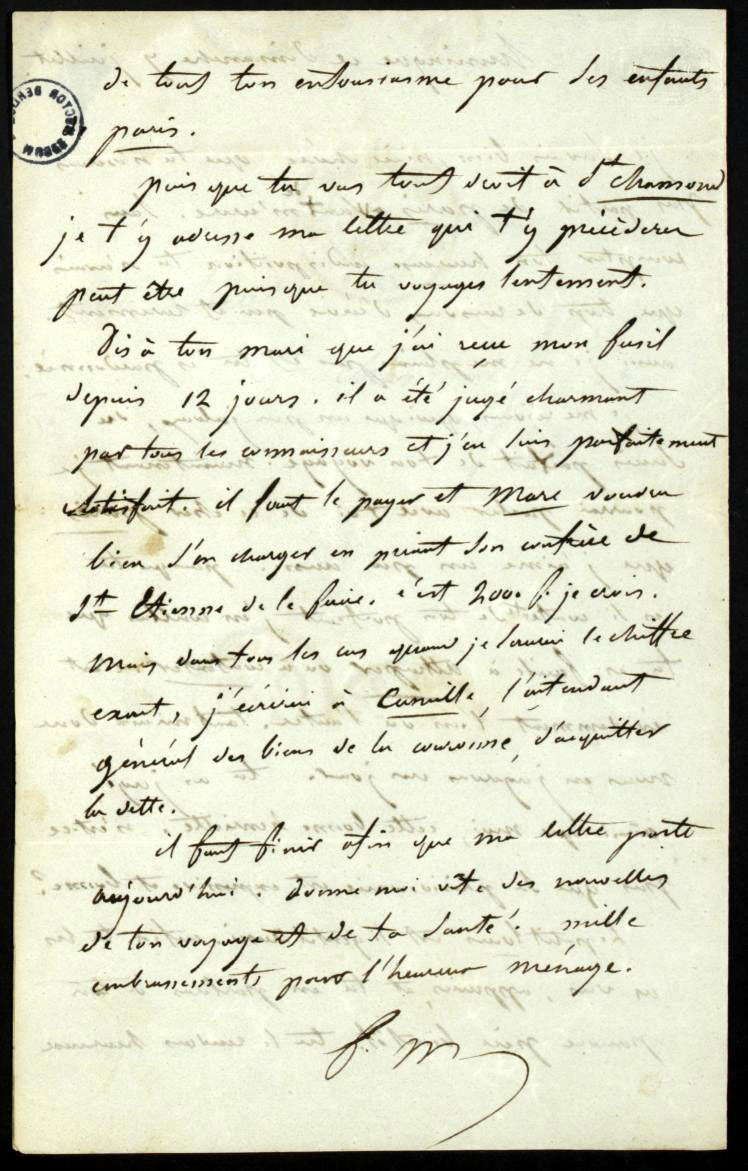 de tout ton entousiasme pour des enfants
paris.
puisque tu vas tout droit à St chamond
je t'y adresse ma lettre qui t'y précédera
peut être puisque tu voyages lentement.
Dis à ton mari que j'ai reçu mon fusil
depuis 12 jours. il a été jugé charmant
par tous les connaisseurs et j'en suis parfaitement
satisfait. il faut le payer et Marc voudra
bien s'en charger en priant son confrère de
St Etienne de le faire. c'est 200 f. je crois.
Mais dans tous les cas quand je saurai le chiffre
exact, j'écrirai à Camille, l'intendant
général des biens de la couronne, d'acquitter
la dette.
il faut finir afin que ma lettre parte
aujourd'hui. donne moi vite des nouvelles
de ton voyage et de ta santé. mille
embrassements pour l'heureux ménage.
f. m